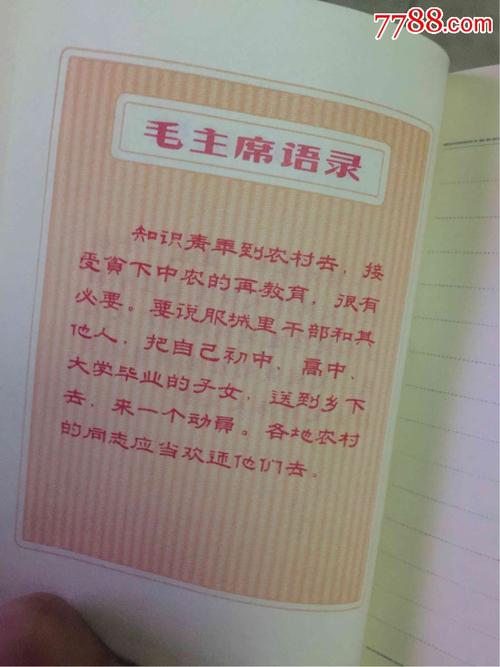 7788.com
毛主席语录
知识青年到农村去，接
受贫下中农的再教育，很有
必要。要说服城里干部和其
他人，把自己初中、高中、
大学毕业的子女，送到乡下
去，来一个动员。各地农村
的同志应当欢迎他们去。